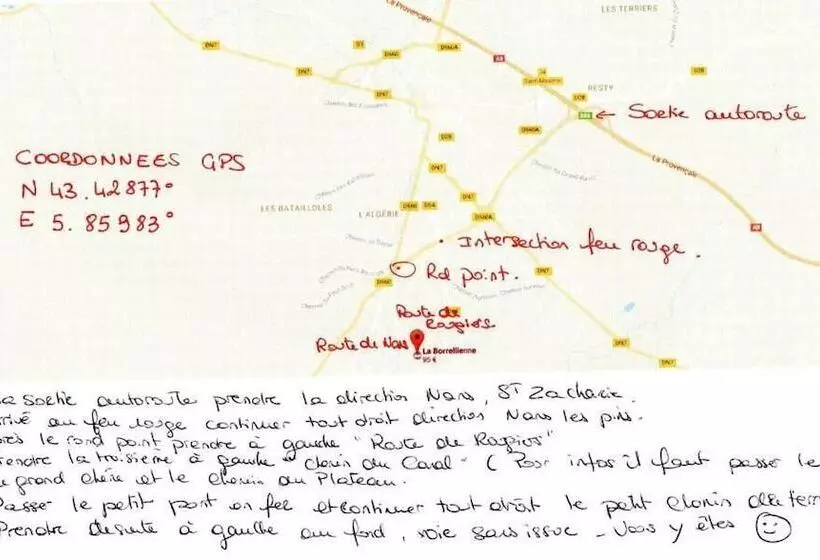 La Provençale
LES TERRIERS
DN7
D560A
D560
DN7
A8
Saint-Maximin
D28
RESTY
DN7
← Sortie autoroute
D28
D560A
La Provençale
COORDONNEES GPS
N 43.42877°
E 5.85983°
DN7
LES BATAILLOLES
L'ALGÉRIE
D560A
A8
• Intersection feu rouge.
Rd point.
DN7
D560
Route de
Raspios
DN7
Route de Nans
La Borrellienne
95 €
DN7
sortie autoroute prendre la direction Nans, ST Zacharie.
au feu rouge continuer tout droit direction Nans les pins.
le rond point prendre à gauche "Route de Raspios"
la troisième à gauche "chemin du Canal" (Pour infos il faut passer le
grand chêne et le chemin du Plateau.
Passer le petit pont en fer et continuer tout droit le petit chemin de terre
Prendre desuite à gauche au fond, voie sans issue - Vous y êtes